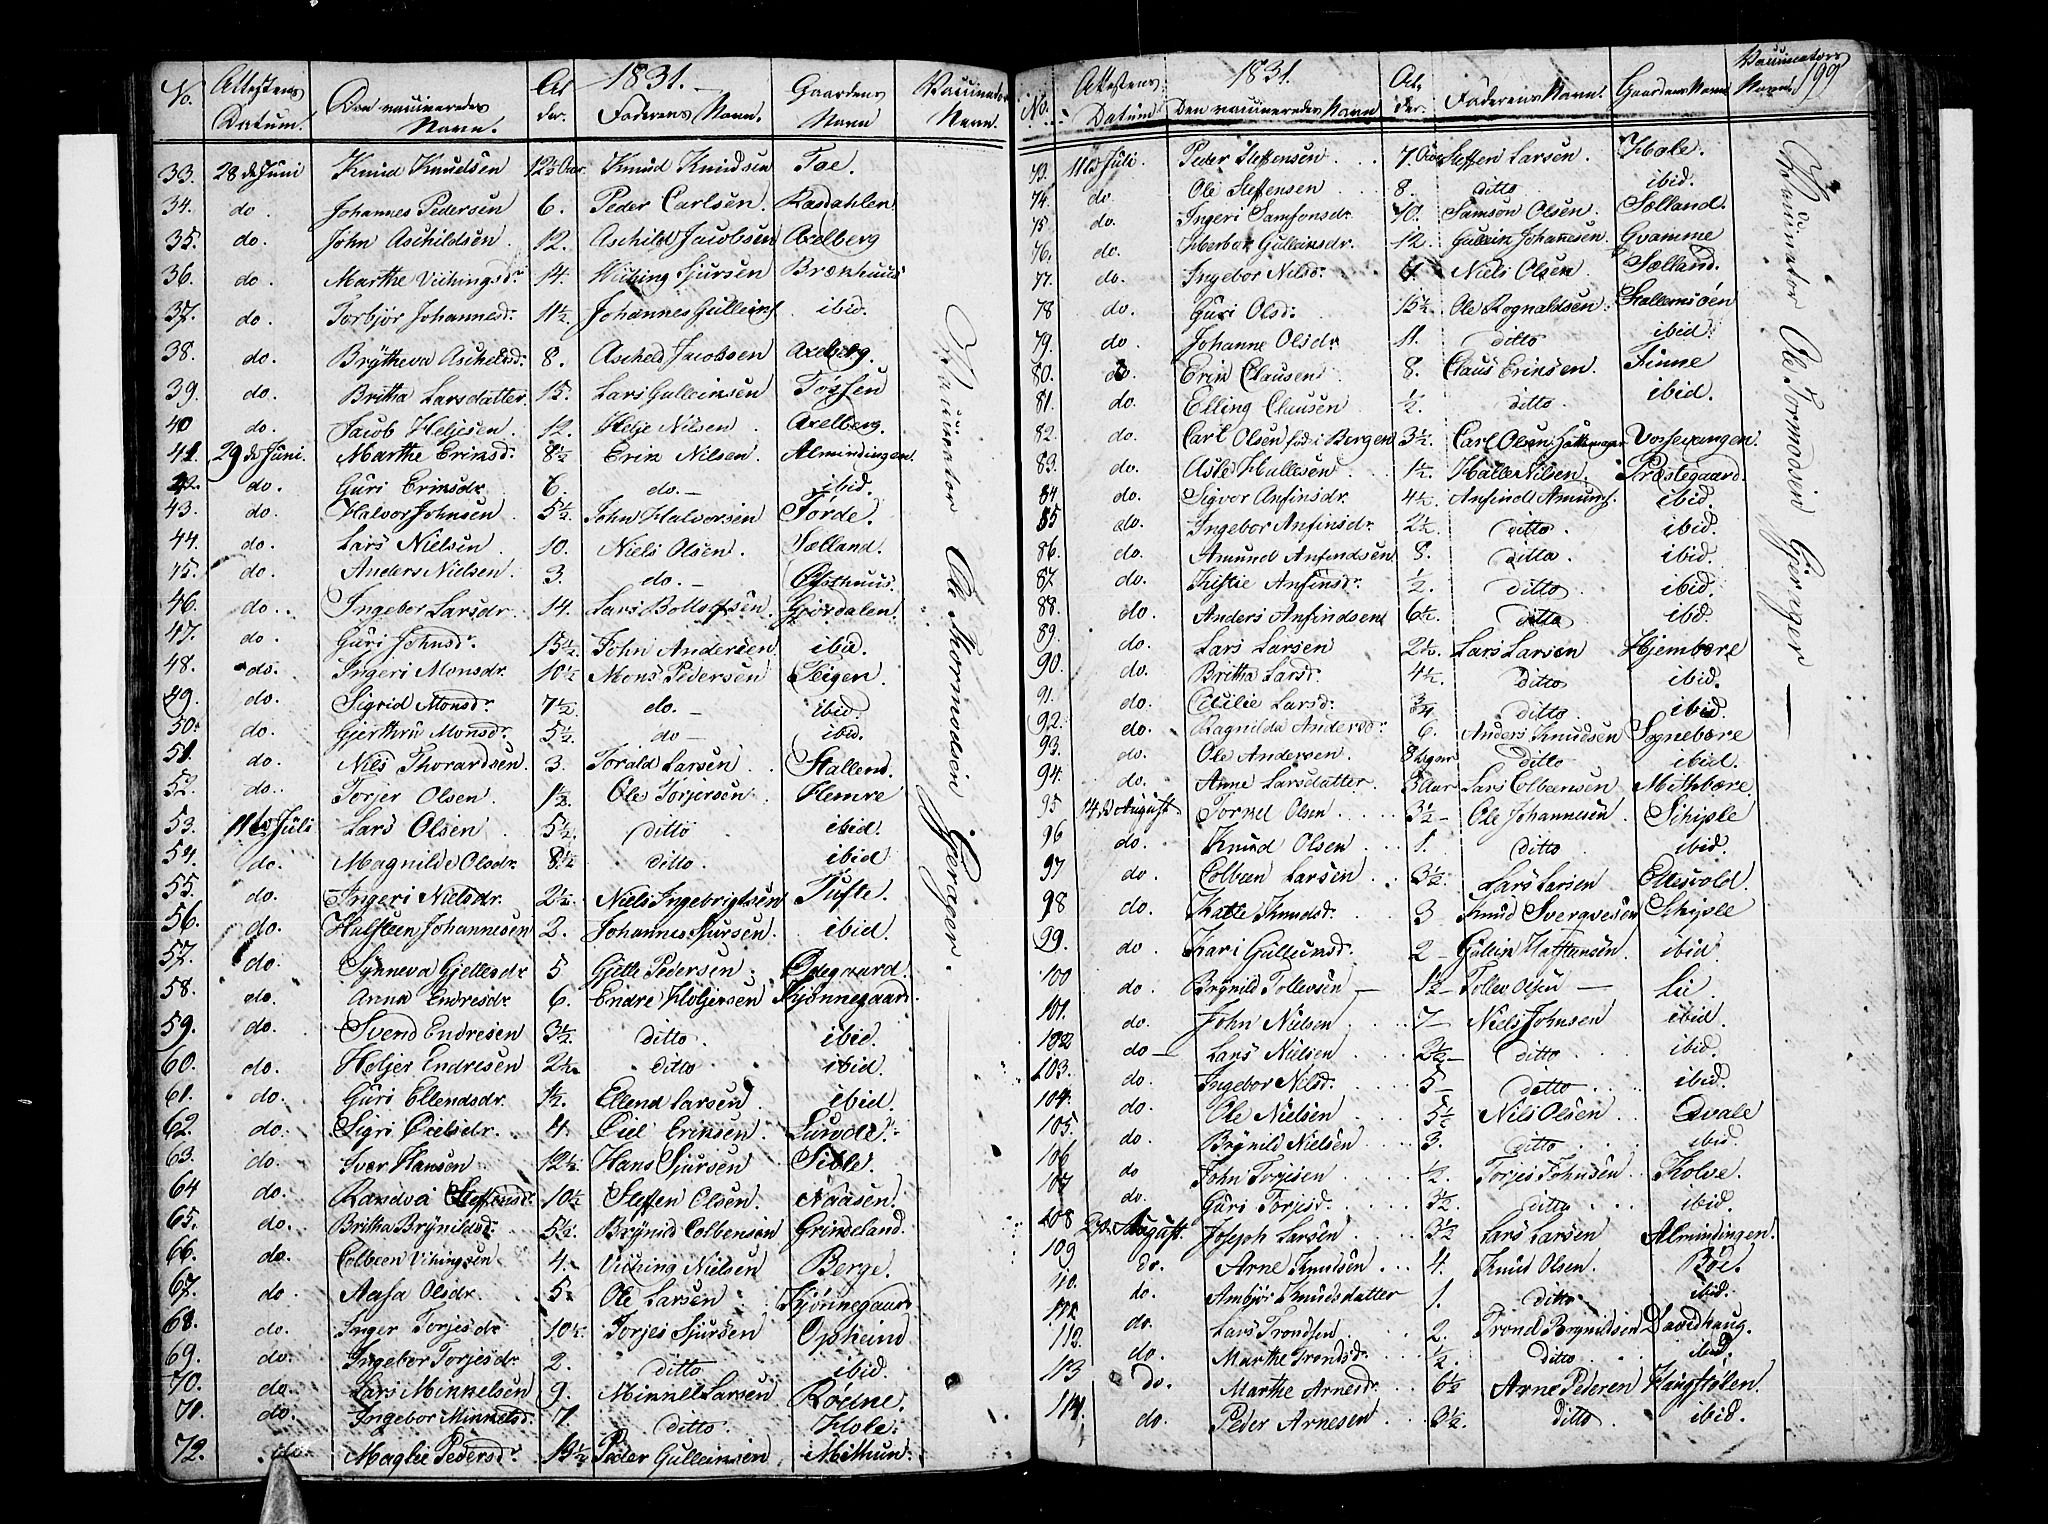 No. Attestens Datum. Den vaccineredes Navn. Al der. 1831. Faderens Navn. Gaardens Navn Vaccinators Navn.
33. 28 de Juni Knud Knudsen 12½ Aar. Knud Knudsen Toe.
34. do. Johannes Pedersen 6. Peder Carlsen. Rasdahlen
35. do. John Aschildsen 12. Aschild Jacobsen Axelberg
36. do. Marthe Vichingsdr. 14. Viching Sjursen Brækhuus
37. do. Torbjør Johannesdr. 11½ Johannes Gulleins. ibid.
38. do. Brytheva Aschelsdr. 8. Ascheld Jacobsen Axelberg.
39. do. Britha Larsdatter. 15. Lars Gulleinsen Tossen
40 do. Jacob Heljesen. 12. Helje Nilsen. Axelberg.
41. 29 de Juni. Marthe Eriksd. 8½ Erik Nilsen. Almindingen.
42. do. Guri Eriksdr. 6. do.— ibid.
43. do. Halvor Johnsen 5½ John Halvorsen Førde.
44. do. Lars Nielsen 10. Niels Olsen. Sælland.
45. do. Anders Nielsen. 3. do.—
46. do. Ingebor Larsdr. 14. Lars Gjøsdalen.
47. do. Guri Johnsd. 15½ John Andersen ibid.
48. do. Ingeri Monsdr. 10½ Mons Pedersen Seigen.
49. do. Sigrid Monsd. 7½ do.— ibid.
50. do. Gjerthru Monsdr. 5½ do— ibid.
51. do. Nils Thorardsen. 3. Torald Larsen Stallend.
52. do. Torjer Olsen. 1½ Ole Torjersen. Flemre
53. 11 de Juli Lars Olsen 5½ ditto ibid.
54. do. Magnilde Olsdr. 8½ ditto. ibid
55. do. Ingeri Nielsdr. 2½ Niels Ingebrigtsen Tufte.
56. do. Halsteen Johannesen 2. Johannes Sjursen. ibid.
57. do. Synneva Gjettesdr. 5 Gjette Pedersen. Opegaard.
58. do. Anna Endresdr. 6. Endre Holjersen Kjønnegaard.
59. do. Svend Endresen 3½ ditto. ibid.
60. do. Holjer Endresen 2½ ditto ibid.
61. do. Guri Ellendsdr. 1½. Ellend Larsen ibid.
62. do. Sigri 4. Eriksen. Lunde.
63. do. Iver Hansen 12½ Hans Sjursen Seble.
64 do. Randvei Steffensd. 10½ Steffen Olsen. Naasen.
65. do. Britha Brynildsd. 5½. Brynild Colbensen Grindeland.
66. do Colbeen Vikingsen 4. Viching Nielsen Berge.
67. do Aasa Olsdr. 5. Ole Larsen Kjønnegaard
68. do. Inger Torjesdr. 10½. Torjes Sjursen Opheim
69. do. Ingebor Torjesdr. 2. ditto ibid.
70. do. Lars Minnelsen 9. Minnel Larsen Rødne.
71. do. Ingebor Minnelsd. 7. ditto. Hole.
72. do. Maglie Pedersd. 13½ Peder Gulleinsen iMithun.
Vaccinator Ole Thormodsen Gjerager.
No. Attestens Datum. 1831. Den vaccineredes Navn Al, der. Faderens Navn. Gaardens Navn Vaccinators Navn. 199
73. 11 de Juli Peder Steffensen 7 Aar Steffen Larsen. Hole.
74. do. Ole Steffensen 8. ditto ibid.
75 do. Ingeri Samsonsdr. 10. Samson Olsen. Sælland.
76. do. Herbor Gulleinsdr. 12. Gullein Johannesen. Gvamme
77. do. Ingebor Nilsd. Niels Olsen Sælland.
78 do. Guri Olsd. 15½ Ole Rognaldsen Stallemsøen
79. do. Johanne Olsdr. 11. ditto ibid.
80. do Erik Clausen. 8. Claus Eriksen. Finne
81. do. Elling Clausen ½ ditto ibid.
82. do. Carl Olsen født i Bergen 3½. Carl Olsen Vossevangen.
83. do. Asle Hallesen. 1½. Halle Nilsen. Præstegaard
84 do. Sigvor Anfinsdr. 4½. Anfindt Amunds. ibid.
85 do. Ingebor Anfinsdr. 2½. ditto. ibid.
86. do. Amund Anfindsen 8. ditto ibid.
87. do. Anfinsdr. ½ ditto ibid.
88. do. Anders Anfindsen 6½. ditto ibd.
89. do. Lars Larsen 2½. Lars Larsen Hjembære
90. do. Britha Larsd. 4½. ditto ibid.
91. do. Larsd. ¾ ditto ibid.
92. do. Ragnilda Andersdr. 6. Anders Knudsen Sognebære
93. do. Ole Andersen. 8 Uger ditto ibid.
94. do. Anne Larsdatter 3 Aar Lars Colbensen Mithbære.
95 14 de August. Torsted Olsen 3½— Ole Johannesen Schjple
96 do. Knud Olsen 1. ditto ibid.
97 do. Colbeen Larsen 3½. Lars Larsen Ellesvold.
98 do. Katle Knudsd. 3 Knud Schjple
99. do. Kari Gulleinsd. 2— Gullein ibid.
100 do. Brynild Tollevsen— 1½— Tollev Olsen— Lie.
101. do. John Nielsen 7— Niels Johnsen ibid.
102 do— Lars Nielsen 3½— ditto ibid.
103. do. Ingebor Nilsd. 5— ditto. ibid.
104. do. Ole Nielsen 5½ Nils Olsen Qvale
105. do. Brynild Nielsen 3. ditto ibid.
106 do John Torjesen ½. Torjes Johnsen Kolve.
107 do. Guri Torjesd. 3½. ditto ibid.
108 August. Joseph Larsen. 3½ Lars Larsen Almindingen.
109 do. Arne Knudsen 4. Knud Olsen. Bøe.
110. do. Ambjør Knudsdatter 1. ditto ibid.
112 do. Lars Trondsen 2. Trond Brynildsen Davidhaug.
113. do. Marthe Trondsd. ½. ditto ibid.
113 do. Marthe Arnesdr. 6½ Arne Pedersen Haugstølen.
114. do. Peder Arnesen 3½. ditto ibid.
Vaccinator Ole Tormodsen Gjerager —